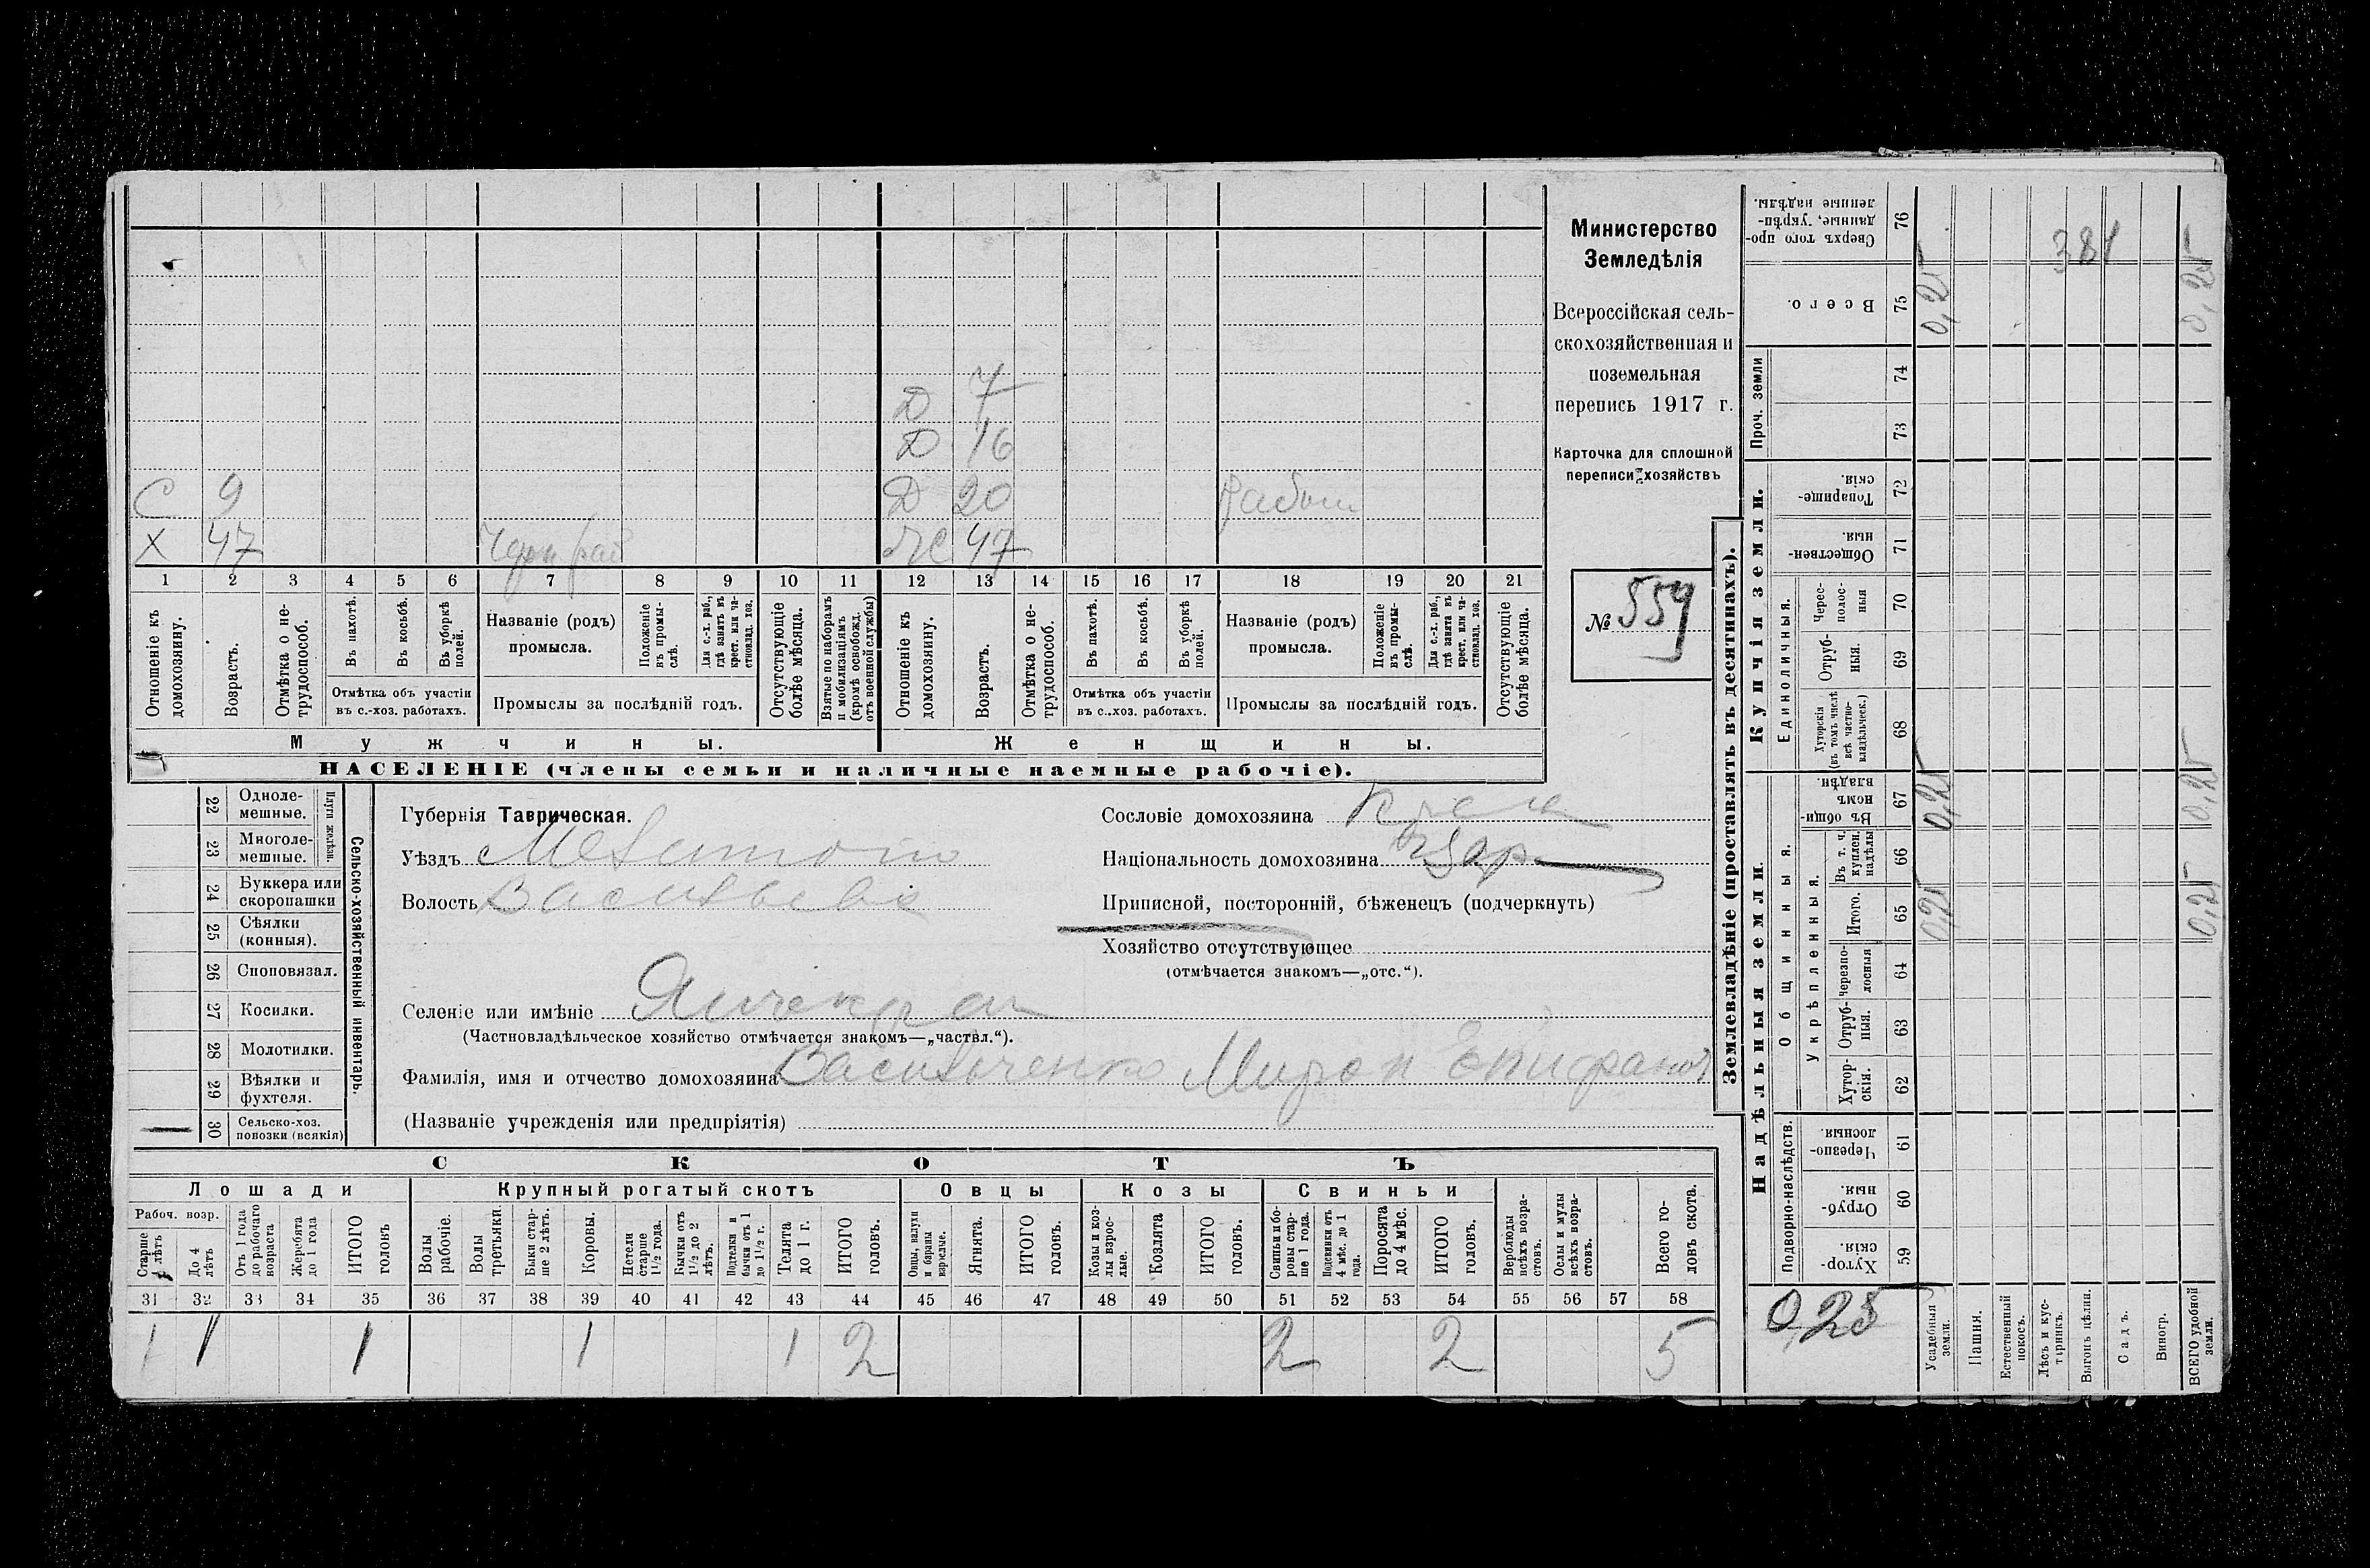 Министерство
Земледѣлія
Всероссійская сель-
скохозяйственная и
поземельная
перепись 1917 г.
Карточка для сплошной
переписи хозяйствъ
№ 559
Д 7
Д 16
С 9 Д 20
Х 47 Ж 47
1 2 3 4 5 6 7 8 9 10 11 12 13 14 15 16 17 18 19 20 21
Отношеніе къ домохозяину.
Возрастъ.
Отмѣтка о не-трудоспособ.
Въ пахотѣ.
Въ косьбѣ.
Въ уборкѣ полей.
Отмѣтка объ участіи
въ с.-хоз. работахъ.
Названіе (родъ)
промысла.
Положеніе въ промы-слѣ.
Для с.-х. раб., гдѣ занятъ въ крест. или ча-стновлад. хоз.
Промыслы за послѣдній годъ.
Отсутствующіе болѣе мѣсяца.
Взятые по наборамъ и мобилизаціямъ (кромѣ освобожд. отъ военной службы)
Отношеніе къ домохозяину.
Возрастъ.
Отмѣтка о не-трудоспособ.
Въ пахотѣ.
Въ косьбѣ.
Въ уборкѣ полей.
Отмѣтка объ участіи
въ с..хоз. работахъ.
Названіе (родъ)
промысла.
Положеніе въ промы-слѣ.
Для с.-х. раб., гдѣ занята въ крест. или ча-стновлад. хоз.
Промыслы за послѣдній годъ.
Отсутствующіе болѣе мѣсяца.
Мужчины. Женщины.
НАСЕЛЕНІЕ (члены семьи и наличные наемные рабочіе).
Сельско-хозяйственный инвентарь.
Плуги желѣзн.
22 Одноле-мешные.
23 Многоле-мешные.
24 Буккера или скоропашки
25 Сѣялки (конныя).
26 Споповязал.
27 Косилки.
28 Молотилки.
29 Вѣялки и фухтеля.
30 Сельско-хоз. повозки (всякія)
Губернія Таврическая.
Уѣздъ
Волость
Сословіе домохозяина
Національность домохозяина
Приписной, посторонній, бѣженецъ (подчеркнуть)
Хозяйство отсутствующее
(отмѣчается знакомъ—„отс.“).
Селеніе или имѣніе Янчекрак
(Частновладѣльческое хозяйство отмѣчается знакомъ—„частвл.“).
Фамилія, имя и отчество домохозяина Васильченко Мирон Епифанов
(Названіе учрежденія или предпріятія)
СКОТЪ
Лошади Крупный рогатый скотъ Овцы Козы Свиньи
Рабоч. возр.
Старше 4 лѣтъ
До 4 лѣтъ
Отъ 1 года до рабочаго возраста
Жеребята до 1 года
ИТОГО головъ
Волы рабочіе.
Волы третьяки.
Быки стар-ше 2 лѣтъ.
Коровы.
Нетели старше 1½ года.
Бычки отъ 1½ до 2 лѣтъ.
Подтелки и бычки отъ 1 до 1½ г.
Телята до 1 г.
ИТОГО головъ.
Овцы, валухи и бараны взрослые.
Ягнята.
ИТОГО головъ.
Козы и коз-лы взрос-лые.
Козлята
ИТОГО головъ.
Свиньи и бо-ровы стар-ше 1 года.
Подсвинки отъ 4 мѣс. до 1 года.
Поросята до 4 мѣс.
ИТОГО головъ.
Верблюды всѣхъ возра-стовъ.
Ослы и мулы всѣхъ возра-стовъ.
Всего го-ловъ скота.
31 32 33 34 35 36 37 38 39 40 41 42 43 44 45 46 47 48 49 50 51 52 53 54 55 56 57 58
1 1 1 1 1 2 2 2 5
Землевладѣніе (проставлять въ десятинахъ).
Надѣльныя земли. Купчія земли.
Подворно-наслѣдств.
Общинныя.
Укрѣпленныя.
Единоличныя.
Проч. земли
Хутор-скія. 59
Отруб-ныя. 60
Черезпо-лосныя. 61
Хутор-скія. 62
Отруб-ныя. 63
Черезпо-лосныя 64
Итого. 65
Въ т. ч. куплен. надѣлы 66
Въ общи-номъ владѣн. 67
Хуторскія (въ томъ числѣ всѣ частно-владѣльческ.) 68
Отруб-ныя. 69
Черес-полос-ныя 70
Обществен-ныя. 71
Товарище-скія. 72
73
74
Всего. 75
Сверхъ того про-данные, укрѣп-ленные надѣлы. 76
0,25
Усадебныя земли.
Пашня.
Естественный покосъ.
Лѣсъ и кус-тарникъ.
Выгонъ цѣлин.
Садъ.
Виногр.
ВСЕГО удобной земли.
0,25 0,25 0,25
381
0,25 0,25 0,25